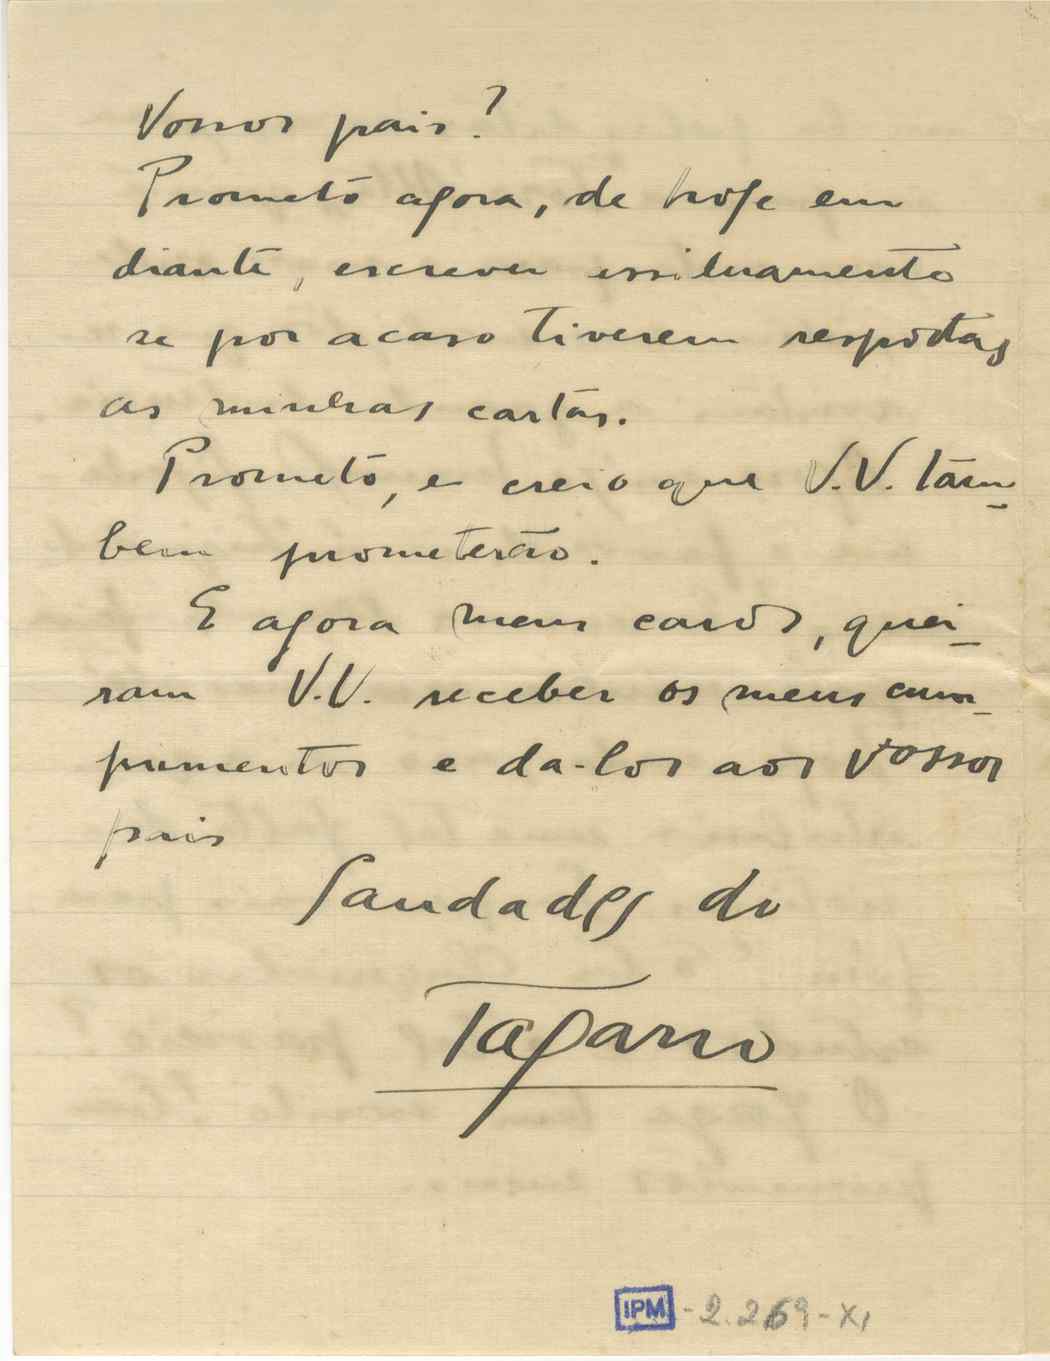 Vossos pais?
Prometo agora, de hoje em
diante, escrever assiduamente
se por acaso tiverem respostas
as minhas cartas.
Prometo, e creio que V.V. tam-
bem prometerão.
E agora meus caros, quei-
ram V.V. receber os meus cum-
primentos e da-los aos Vossos
pais
Saudades do
Tagarro
IPM - 2.269 - XI